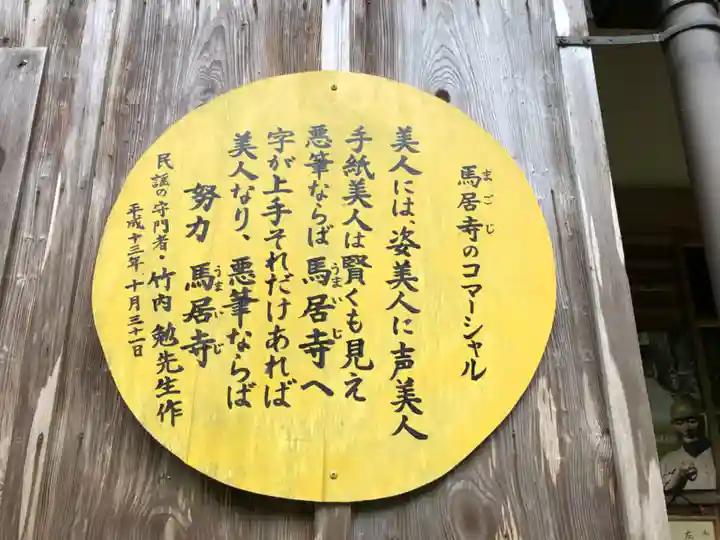 馬居寺のコマーシャル
まごじ
美人には、姿美人に声美人
手紙美人は賢くも見え
悪筆ならば馬居寺へ
うまいじ
字が上手それだけあれば
美人なり、悪筆ならば
努力 馬居寺
うまいじ
民謡の守門者・竹内勉先生作
平成十三年十月三十一日
左